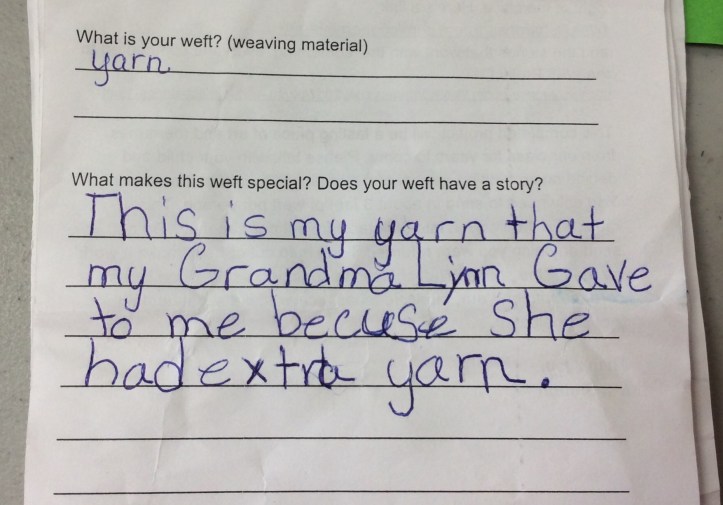 What is your weft? (weaving material)
yarn
What makes this weft special? Does your weft have a story?
This is my yarn that
my Grandma Lynn Gave
to me becuse She
had extra yarn.